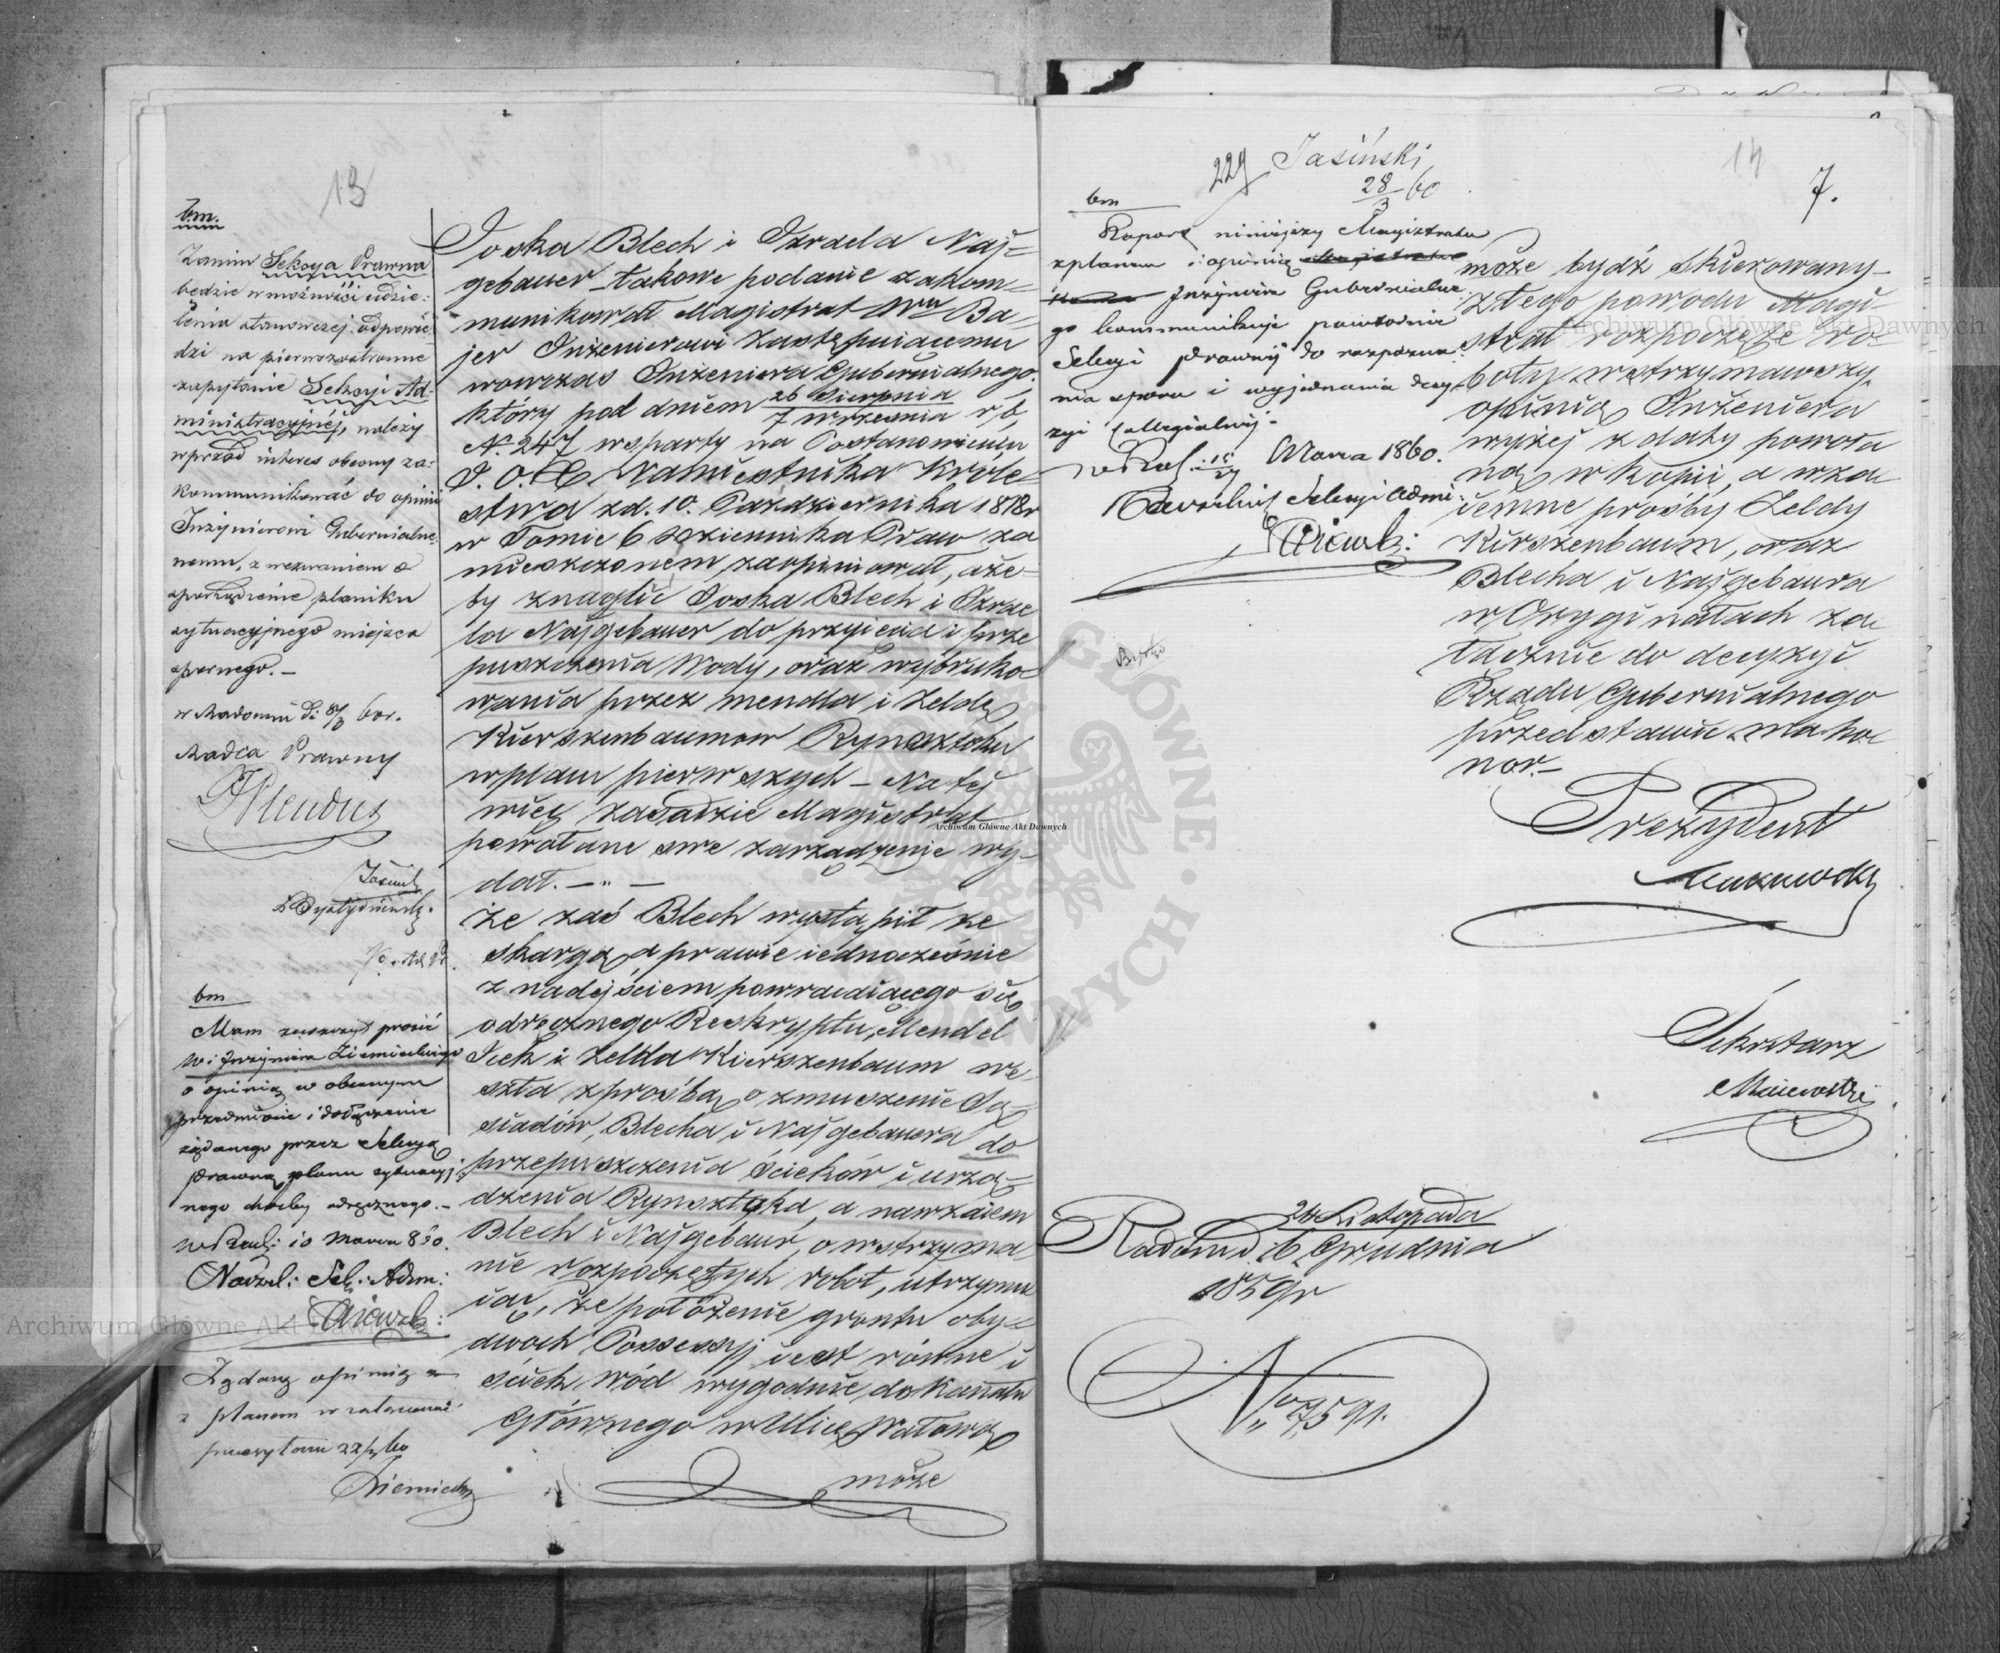 13
bm.
Zanim Sekcya Prawna
będzie w możności udzie-
lenia stanowczej odpowie-
dzi na pierwozwrotne
zapytanie Sekcyi Ad-
ministracyjnéj, należy
wprzód interes obecny za-
kommunikować do opinii
Inżynierowi Gubernialne-
nemu, z wezwaniem o
sporządzenie planiku
sytuacyjnego miejsca
spornego. –
w Radomiu d. 8/3 60r.
Radca Prawny
bm
Mam zaszczyt prosić
W: Inżyniera Ziemieckiego
o opinią w obecnym
przedmiocie i dołączenie
żądanego przez Sekcyą
Prawną planu sytuacyj-
nego choćby odręcznego. –
w Rad: 10 Marca 860.
Naczel: Sek: Adm:
Żądaną opinią
z planem w załączeniu
przesyłam 22/3 60
Ziemiecki
Joska Blech i Izraela Naj-
gebauer – takowe podanie zakom-
munikował Magistrat Wmu Ba-
jer Inżenierowi zastępuiącemu
wowczas Inżeniera Gubernialnego,
który pod dniem 26 Sierpnia / 7 Września r b,
No 247 wsparty na Postanowieniu
J. O. X. Namiestnika Króle-
stwa z d. 10. Października 1818r
w Tomie 6 Dziennika Praw za
mieszczonem, zaopiniował, aże-
by znaglić Joska Blech i Izrae
la Najgebauer do przyięcia i prze
puszczenia Wody, oraz wybruko-
wania przez Mendla i Zeldę
Kierszenbaumow Rynsztoku
wplau pierwszych – Na tej
więc zasadzie Magistrat
powołane swe zarządzenie wy-
dał. –"–
Że zaś Blech wystąpił ze
skargą, a prawie iednocześnie
z nadejściem powracaiącego się
odręcznego Reskryptu, Mendel
Icek i Zelda Kierszenbaum we-
szła z prośbą o zmuszenie Są-
siadów, Blecha i Najgebauera do
przepuszczenia ścieków i urzą-
dzenia Rynsztoka, a nawzaiem
Blech i Najgebaur, o wstrzyma
nie rozpoczętych robot, utrzymu
iąc, że położenie gruntu oby-
dwoch Possessyj iest równe i
ściek wód wygodnie do Kanału
Głównego w Ulicę Wałową
może
229 Jasiński
28/3 60
14
7.
bm
Raport niniejszy Magistratu
z planem i opinią
Inżyniera Gubernialne-
go kommunikuje powtórnie
Sekcyi Prawnéj do rozpozna-
nia sporu i wyjednania decy-
zyi Collegialnéj.
w Rad: 15/27 Marca 1860.
Naczelnik Sekcyi Admi:
może bydź skierowany –
z tego powodu Magi-
strat rozpoczęte ro-
boty wstrzymawszy,
opinią Inżeniera
wyżej z daty powoła
ną w kopii, a wza
iemne prośby Zeldy
Kirszenbaum, oraz
Blecha i Najgebaura
w Orygi nałach za
łącznie do decyzyi
Rządu Gubernialnego
przedstawić ma ho-
nor. –
Prezydent
Sekretarz
Majewski
Radom d. 24 Listopada / 6 Grudnia
1859r
No 7591.
Archiwum Główne Akt Dawnych
Archiwum Główne Akt Dawnych
Archiwum Główne Akt Dawnych